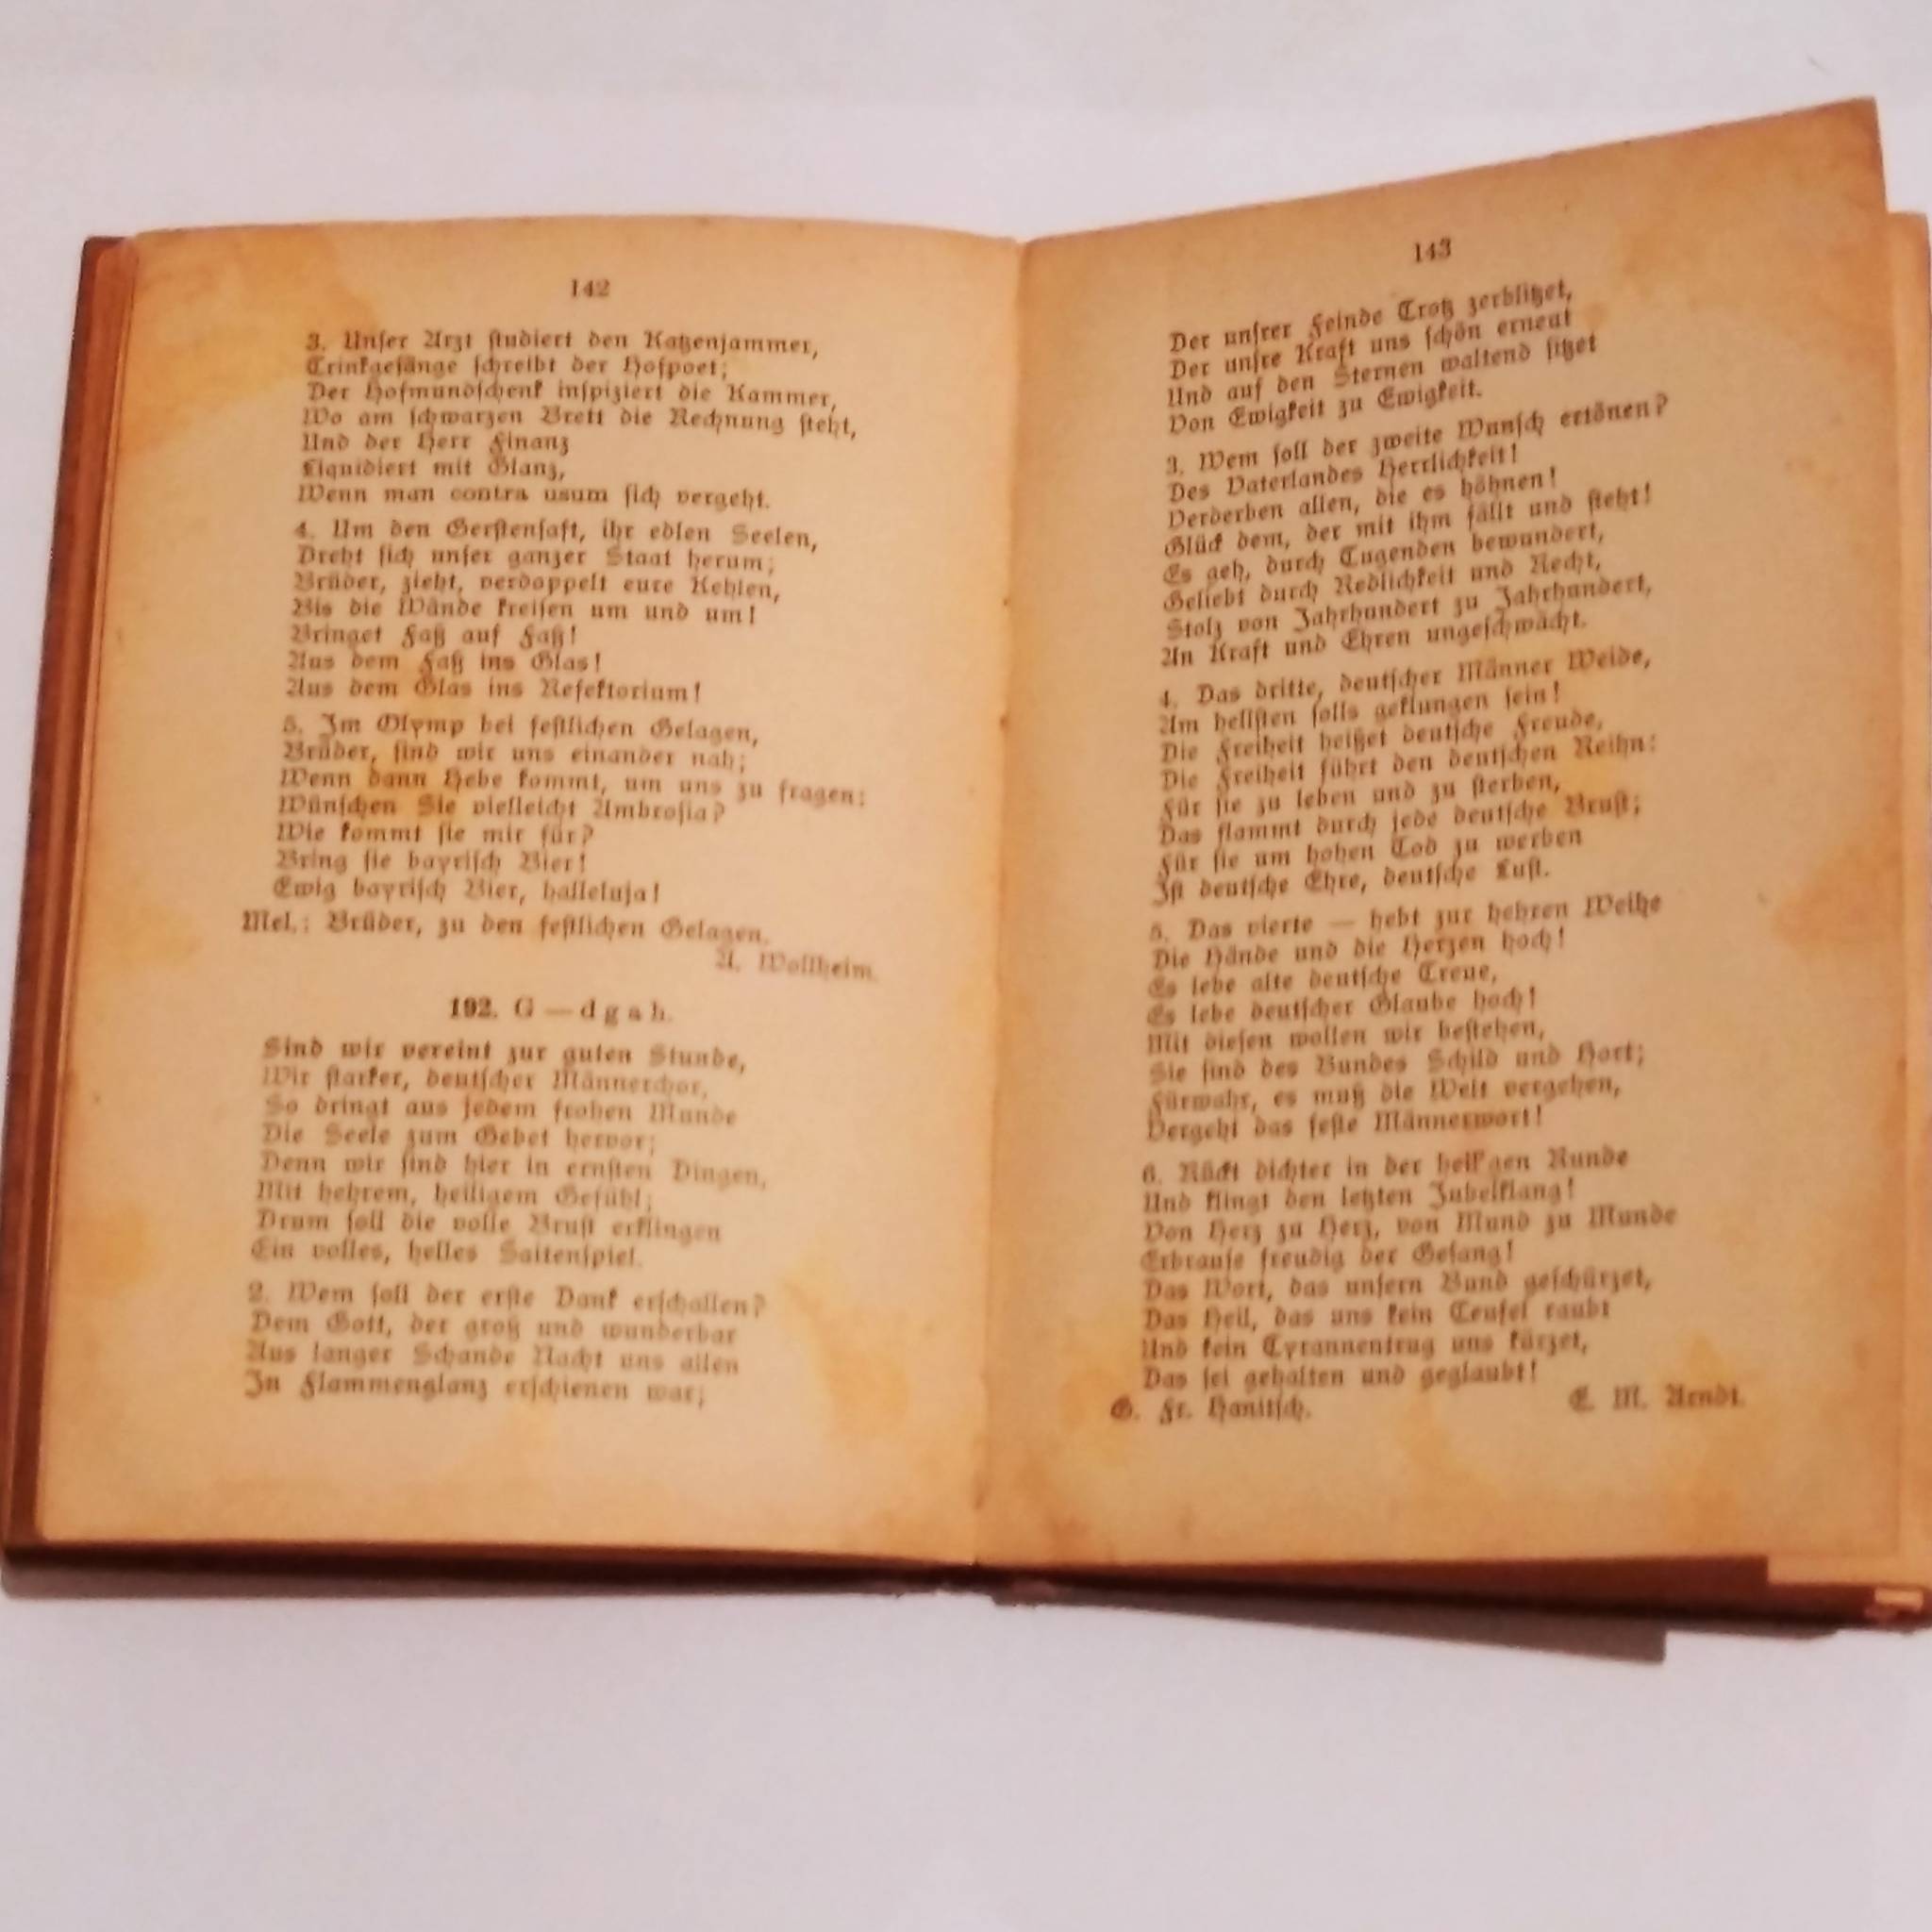 142
3. Unser Arzt studiert den Katzenjammer,
Trinkgesänge schreibt der Hofpoet;
Der Hofmundschenk inspiziert die Kammer,
Wo am schwarzen Brett die Rechnung steht,
Und der Herr Finanz
Liquidiert mit Glanz,
Wenn man contra usum sich vergeht.
4. Um den Gerstensaft, ihr edlen Seelen,
Dreht sich unser ganzer Staat herum;
Brüder, zieht, verdoppelt eure Kehlen,
Bis die Wände kreisen um und um!
Bringet Faß auf Faß!
Aus dem Faß ins Glas!
Aus dem Glas ins Refektorium!
5. Im Olymp bei festlichen Gelagen,
Brüder, sind wir uns einander nah;
Wenn dann Hebe kommt, um uns zu fragen:
Wünschen Sie vielleicht Ambrosia?
Wie kommt sie mir für?
Bring sie bayrisch Bier!
Ewig bayrisch Bier, halleluja!
Mel.: Brüder, zu den festlichen Gelagen.
A. Wollheim.
192. G — d g a h.
Sind wir vereint zur guten Stunde,
Wir starker, deutscher Männerchor,
So dringt aus jedem frohen Munde
Die Seele zum Gebet hervor;
Denn wir sind hier in ernsten Dingen,
Mit hehrem, heiligem Gefühl;
Drum soll die volle Brust erklingen
Ein volles, helles Saitenspiel.
2. Wem soll der erste Dank erschallen?
Dem Gott, der groß und wunderbar
Aus langer Schande Nacht uns allen
In Flammenglanz erschienen war;
143
Der unsrer Feinde Trotz zerblitzet,
Der unsre Kraft uns schön erneut
Und auf den Sternen waltend sitzet
Von Ewigkeit zu Ewigkeit.
3. Wem soll der zweite Wunsch ertönen?
Des Vaterlandes Herrlichkeit!
Verderben allen, die es höhnen!
Glück dem, der mit ihm fällt und steht!
Es geh, durch Tugenden bewundert,
Geliebt durch Redlichkeit und Recht,
Stolz von Jahrhundert zu Jahrhundert,
An Kraft und Ehren ungeschwächt.
4. Das dritte, deutscher Männer Weide,
Am hellsten solls geklungen sein!
Die Freiheit heißet deutsche Freude,
Die Freiheit führt den deutschen Reihn:
Für sie zu leben und zu sterben,
Das flammt durch jede deutsche Brust;
Für sie um hohen Tod zu werben
Ist deutsche Ehre, deutsche Lust.
5. Das vierte — hebt zur hehren Weihe
Die Hände und die Herzen hoch!
Es lebe alte deutsche Treue,
Es lebe deutscher Glaube hoch!
Mit diesen wollen wir bestehen,
Sie sind des Bundes Schild und Hort;
Fürwahr, es muß die Welt vergehen,
Vergeht das feste Männerwort!
6. Rückt dichter in der heil'gen Runde
Und klingt den letzten Jubelklang!
Von Herz zu Herz, von Mund zu Munde
Erbrause freudig der Gesang!
Das Wort, das unsern Bund geschürzet,
Das Heil, das uns kein Teufel raubt
Und kein Tyrannentrug uns kürzet,
Das sei gehalten und geglaubt!
G. Fr. Hanitsch. E. M. Arndt.